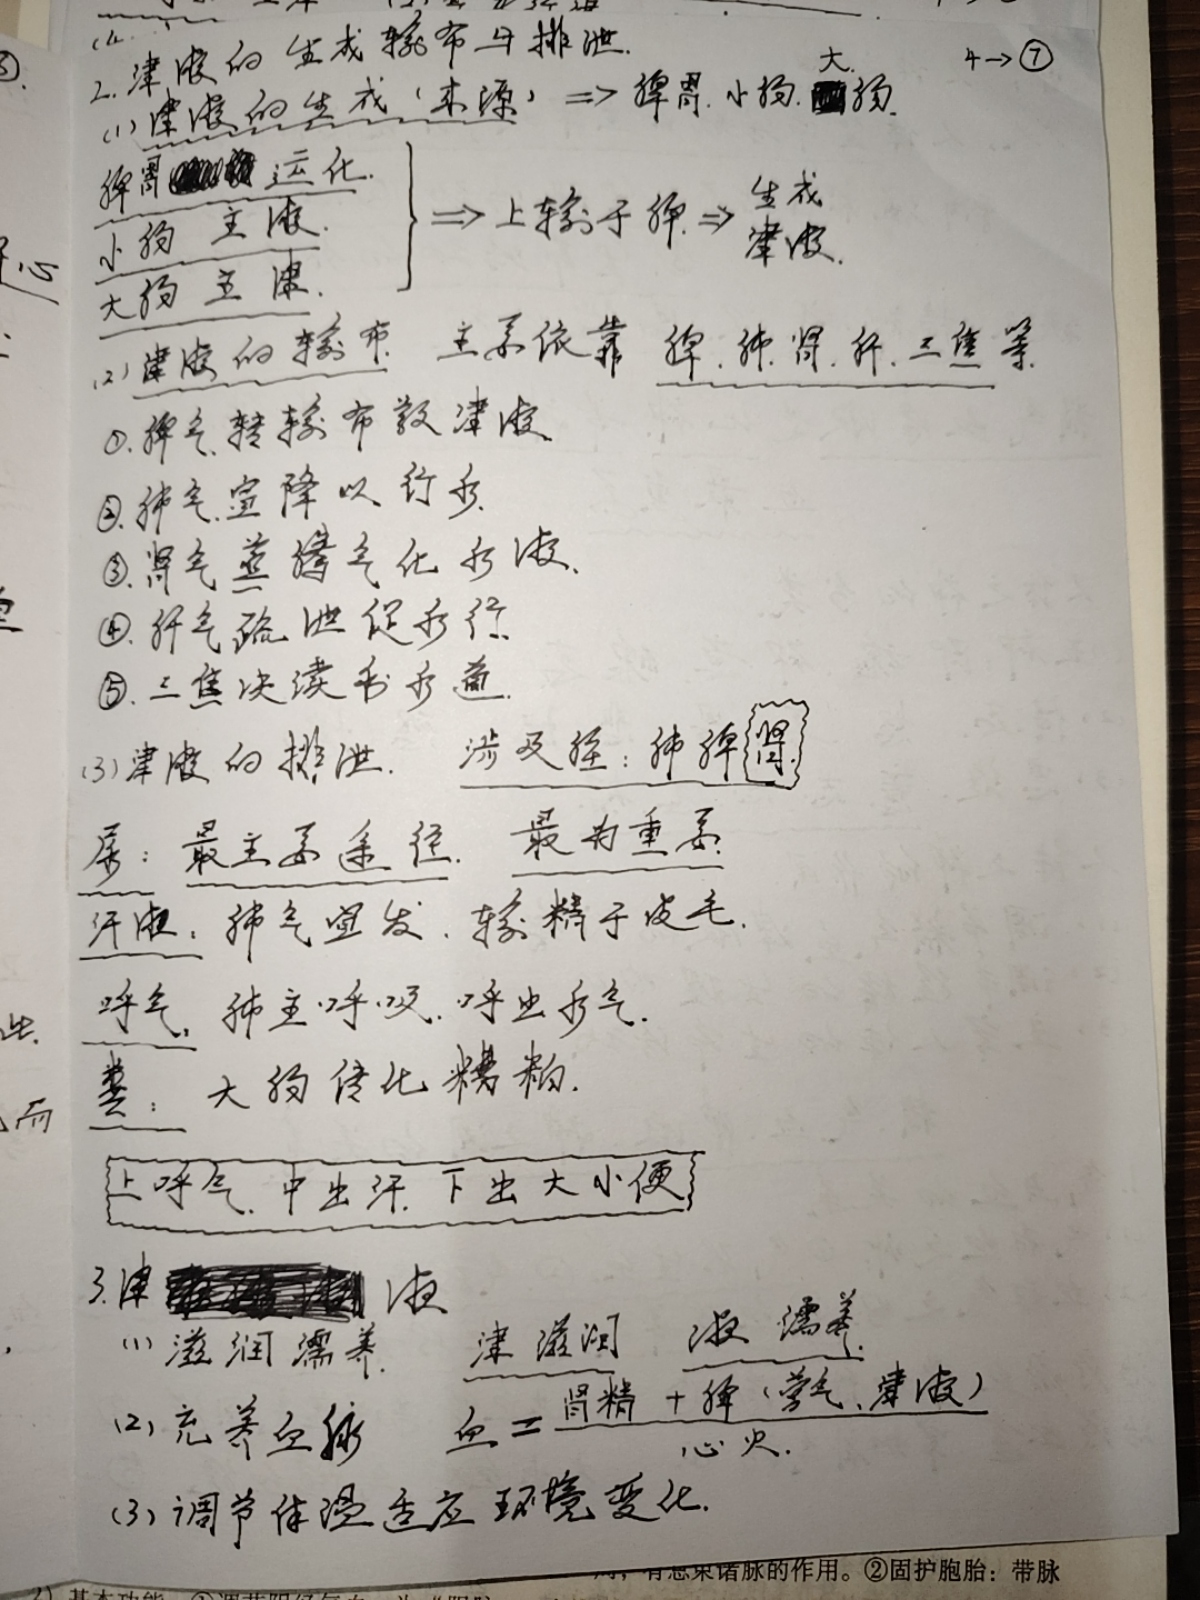 4→⑦
2.津液的生成输布与排泄.
(1)津液的生成(来源) => 脾胃.小肠.大肠.
脾胃 运化.
小肠 主液.
大肠 主津.
=> 上输于脾. => 生成津液.
(2)津液的输布 主要依靠 脾.肺.肾.肝.三焦等.
①.脾气转输布散津液.
②.肺气宣降以行水.
③.肾气蒸腾气化水液.
④.肝气疏泄促水行.
⑤.三焦决渎利水道.
(3)津液的排泄. 涉及脏:肺脾肾.
尿:最主要途径. 最为重要.
汗液:肺气宣发.输精于皮毛.
呼气.肺主呼吸.呼出水气.
粪:大肠传化糟粕.
上呼气.中出汗.下出大小便
3.津 液
(1)滋润濡养. 津滋润 液濡养.
(2)充养血脉 血=肾精+脾(营气、津液)
心火.
(3)调节体温适应环境变化.
有总束诸脉的作用。②固护胞胎：带脉